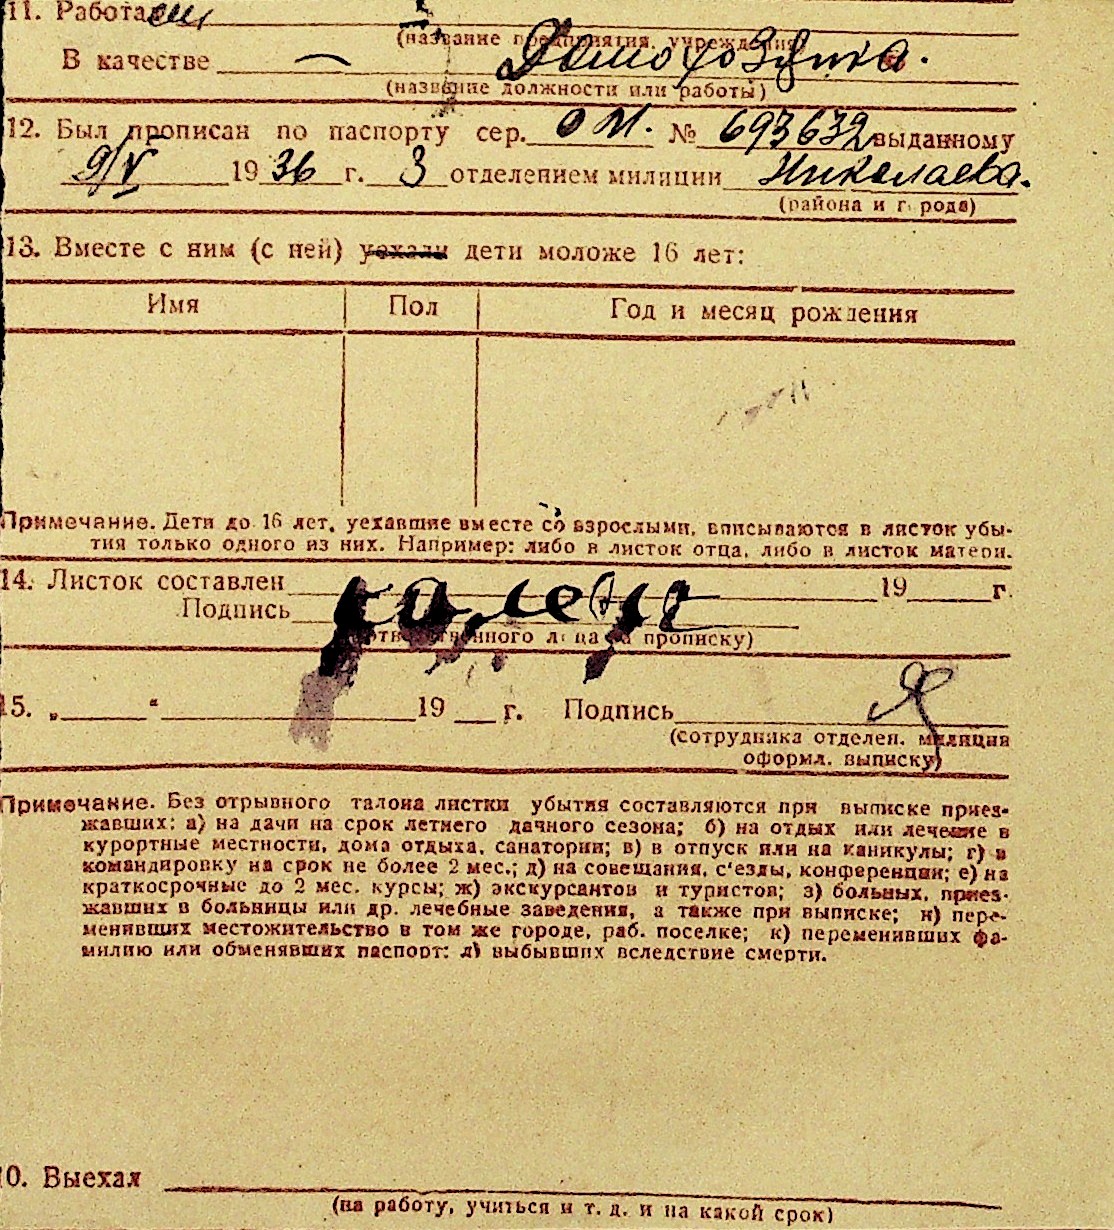 11. Работает
(название предприятия, учреждения)
В качестве — Домохозяйка.
(название должности или работы)
12. Был прописан по паспорту сер. ОМ. № 693632 выданному
9/V 1936 г. 3 отделением милиции Николаева.
(района и города)
13. Вместе с ним (с ней) уехали дети моложе 16 лет:
Имя Пол Год и месяц рождения
Примечание. Дети до 16 лет, уехавшие вместе со взрослыми, вписываются в листок убы-
тия только одного из них. Например: либо в листок отца, либо в листок матери.
14. Листок составлен 19 г.
Подпись
(ответственного лица за прописку)
15. „ “ 19 г. Подпись
(сотрудника отделен. милиции
оформл. выписку)
Примечание. Без отрывного талона листки убытия составляются при выписке приез-
жавших: а) на дачи на срок летнего дачного сезона; б) на отдых или лечение в
курортные местности, дома отдыха, санатории; в) в отпуск или на каникулы; г) в
командировку на срок не более 2 мес.; д) на совещания, с'езды, конференции; е) на
краткосрочные до 2 мес. курсы; ж) экскурсантов и туристов; з) больных, приез-
жавших в больницы или др. лечебные заведения, а также при выписке; и) пере-
менивших местожительство в том же городе, раб. поселке; к) переменивших фа-
милию или обменявших паспорт; л) выбывших вследствие смерти.
10. Выехал
(на работу, учиться и т. д. и на какой срок)